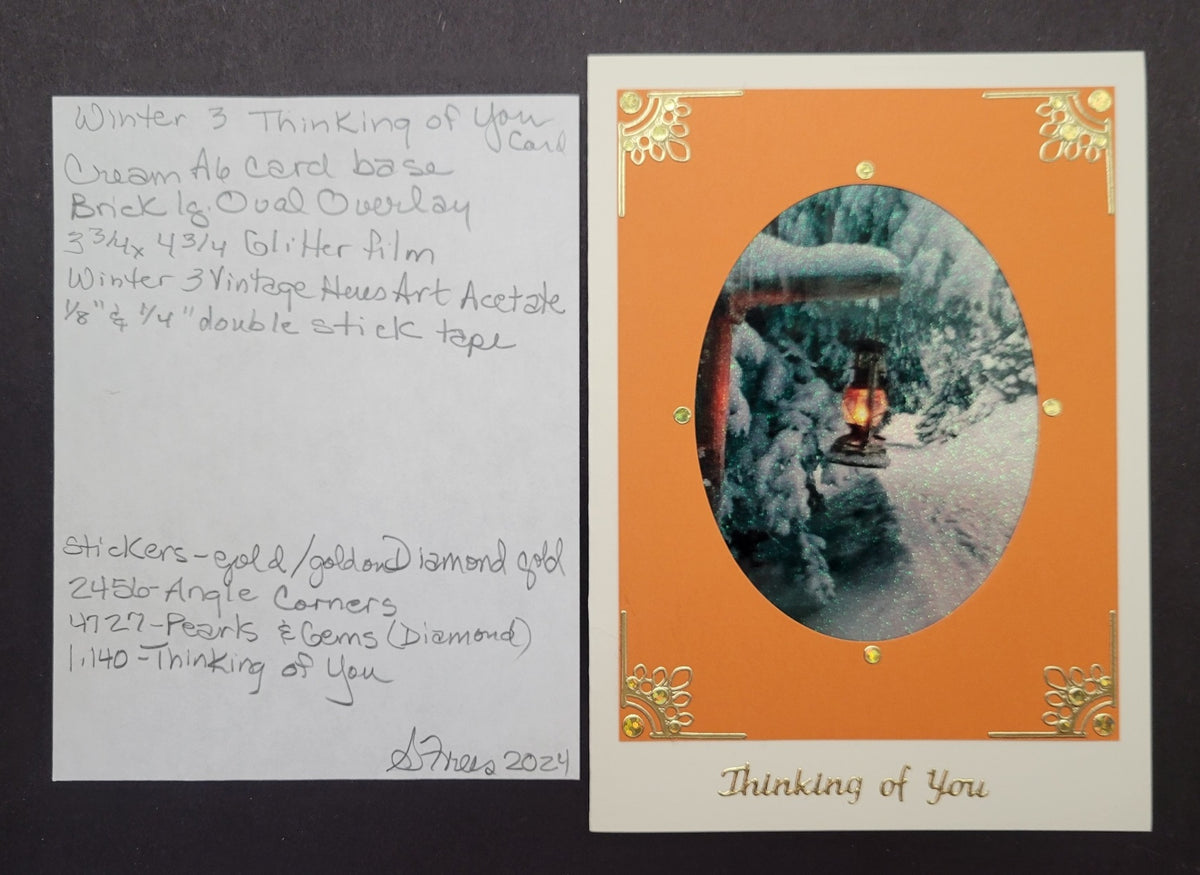 Winter 3 Thinking of You
Card
Cream A6 card base
Brick lg. Oval Overlay
3 3/4 x 4 3/4 Glitter film
Winter 3 Vintage Hues Art Acetate
1/8" & 1/4" double stick tape
Stickers - gold/gold on Diamond gold
2456 - Angle Corners
4727 - Pearls & Gems (Diamond)
1.140 - Thinking of You
S Frees 2024
Thinking of You